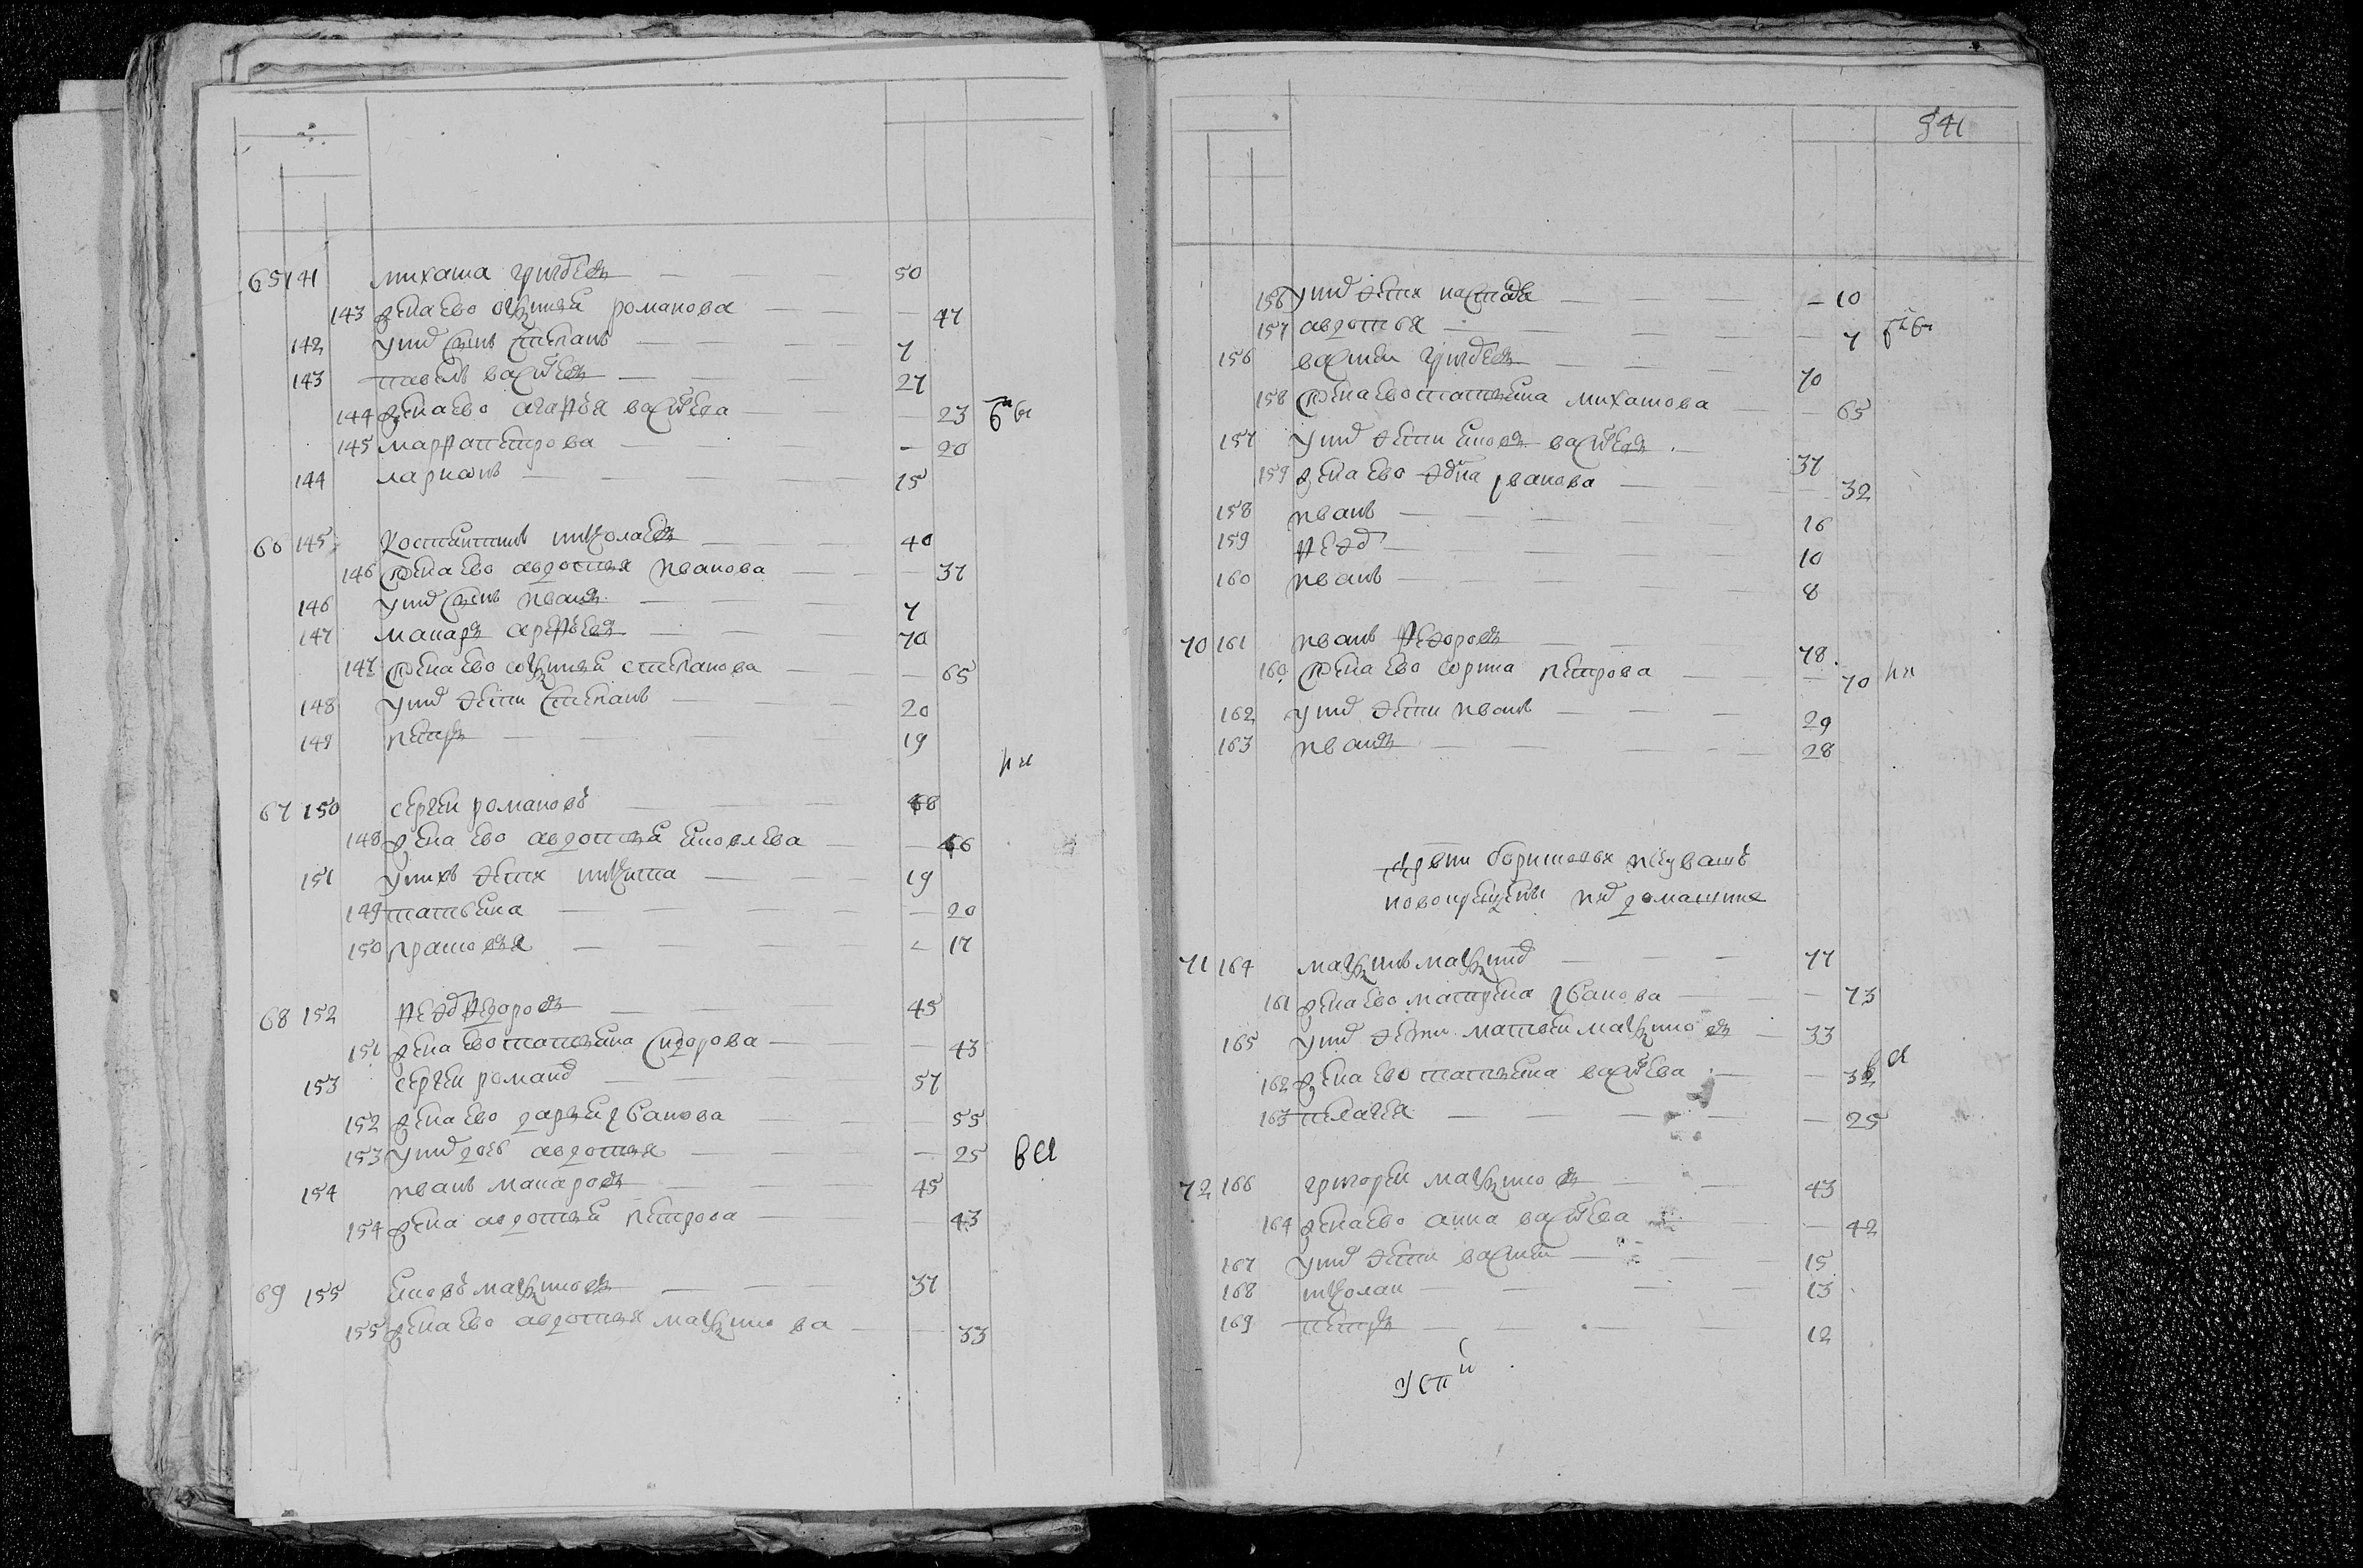 65 141 михаила григорьевъ — — — 50
143 жена ево аксинья романова — — — 47
142 у них сынъ степанъ — — — 7
143 павелъ васильевъ — — — 27
144 жена ево агафья васильева — — 23
145 марфа петрова — — — 20
144 ларионъ — — — 15
66 145 костантинъ николаевъ — — 40
146 жена ево авдотья иванова — — — 37
146 у них сынъ иванъ — — — 7
147 макаръ арефьевъ — — 70
147 жена ево софья степанова — — — 65
148 у них дети степанъ — — — 20
149 петръ — — — 19
67 150 сергеи романовъ — — — 68
148 жена ево авдотья яковлева — — 66
151 у нихъ дети никита — — — 19
149 татьяна — — — 20
150 прасковья — — — 17
68 152 федор федоровъ — — 45
151 жена ево татьяна сидорова — — — 43
153 сергеи романов — — — 57
152 жена ево дарья иванова — — — 55
153 у них дочь авдотья — — — 25
154 иванъ макаровъ — — — 45
154 жена авдотья петрова — — — 43
69 155 яковъ максимовъ — — — 37
155 жена ево авдотья максимова — — 33
541
156 у них дети настасья — — — 10
157 авдотья — — — 7
156 василеи григорьевъ — — — 70
158 жена ево татьяна михаилова — — 65
157 у них дети яковъ васильевъ — 37
159 жена ево анна иванова — — — 32
158 иванъ — — — 16
159 федор — — — 10
160 иванъ — — — 8
70 161 иванъ федоровъ — — — 78
160 жена ево ирина петрова — — — 70
162 у них дети иванъ — — — 29
163 иванъ — — — 28
новокрещены
71 164 максимъ максимов — — — 77
161 жена ево матрена иванова — — 73
165 у них дети матвеи максимовъ — 33
162 жена ево татьяна васильева — — 32
163 пелагея — — — 25
72 166 григореи максимовъ — — 43
164 жена ево анна васильева — 42
167 у них дети василеи — — — 15
168 николаи — — — 13
169 петръ — — — 12